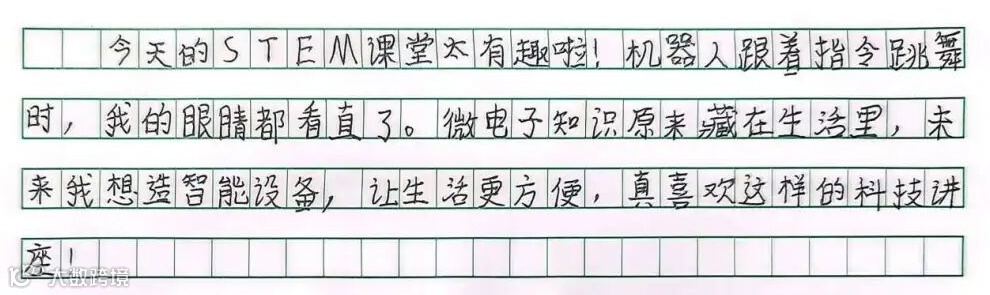 今天的STEM课堂太有趣啦！机器人跟着指令跳舞
时，我的眼睛都看直了。微电子知识原来藏在生活里，未
来我想造智能设备，让生活更方便，真喜欢这样的科技讲
座！
大数跨境